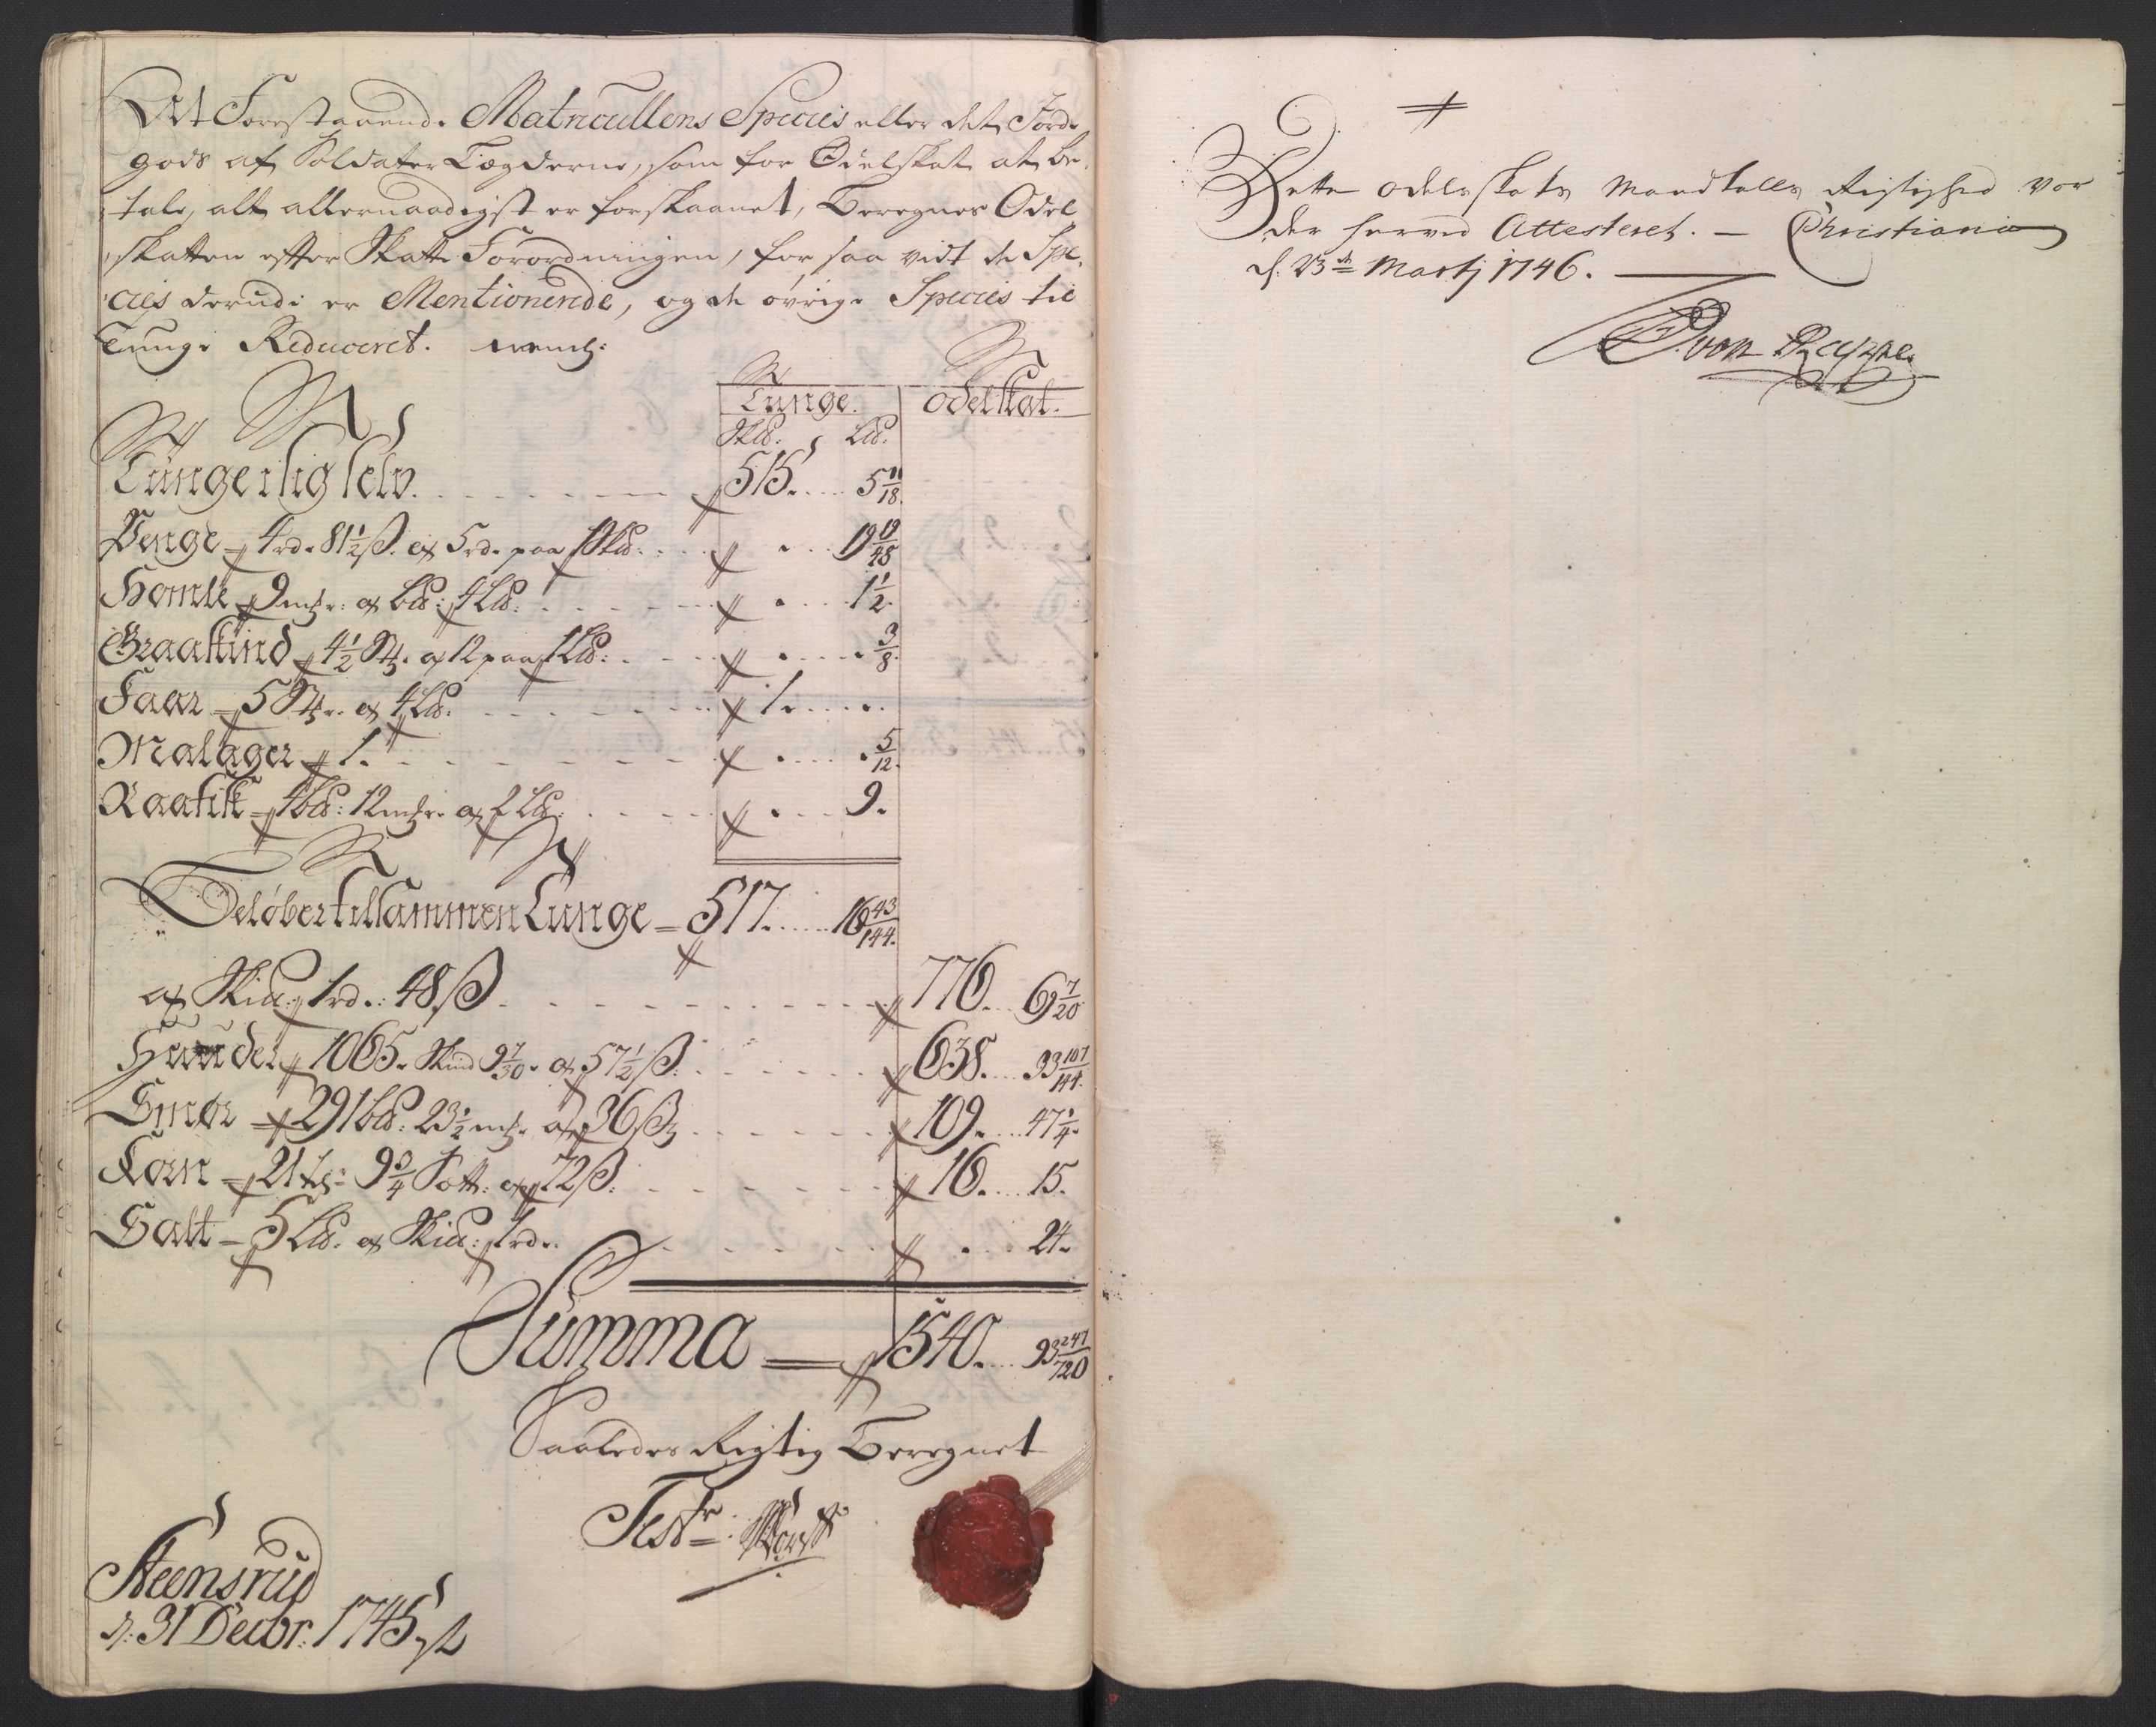 Det Forestaaende Matricullens Species eller det Jorde
gods af Soldater Lægderne, som for Odelskat at be,
tale, alt allernaadigst er forskaanet, Beregnes Odel
skatten efter Skatte Forordningen, for saa vidt de Spe,
cies derudi er Mentionerede, og de øvrige Species til
Tunge Reduceret. nemlig:
Tunge. Odelskat.
Sk℔: L℔:
Tunge i sig selv. 515. 5 11/18.
Penge = 4rd. 81 1/2 ß. a 5rd. paa 1 Sk℔: 19 19/48
Homle 9 mkr: a b℔: 4 L℔: 1 1/2.
Graaskind 4 1/2 St. a 12 paa 1 L℔: 3/8.
Faar = 5 Str. a 4 L℔. 1.
Malager 1. 5/12.
Raafisk = 4 b℔: 12 mkr. a 2 L℔. 9.
Beløber tilsammen Tunge = 517. 16 43/144.
a Sk℔: 1rd.: 48 ß 776. 6 7/20
Huuder 1065. Skind 9 7/30. a 57 1/2 ß. 638. 33 107/144.
Smør = 291 b℔: 23 1/2 mkr. a 36 ß 109. 47 1/4.
Korn = 21 tr: 9 3/4 Sott: a 72 ß. 16. 15.
Salt = 5 L℔. a Sk℔: 1rd. 24.
Summa = 1540. 93 247/720
Saaledes Rigtig Beregnet
Testr:
Steensrud
d: 31 Decbr: 1745
Dette odelsskats Mandtalls Rigtighed vor
der herved Attesteret. — Christiania
d: 23de Martj 1746.
von